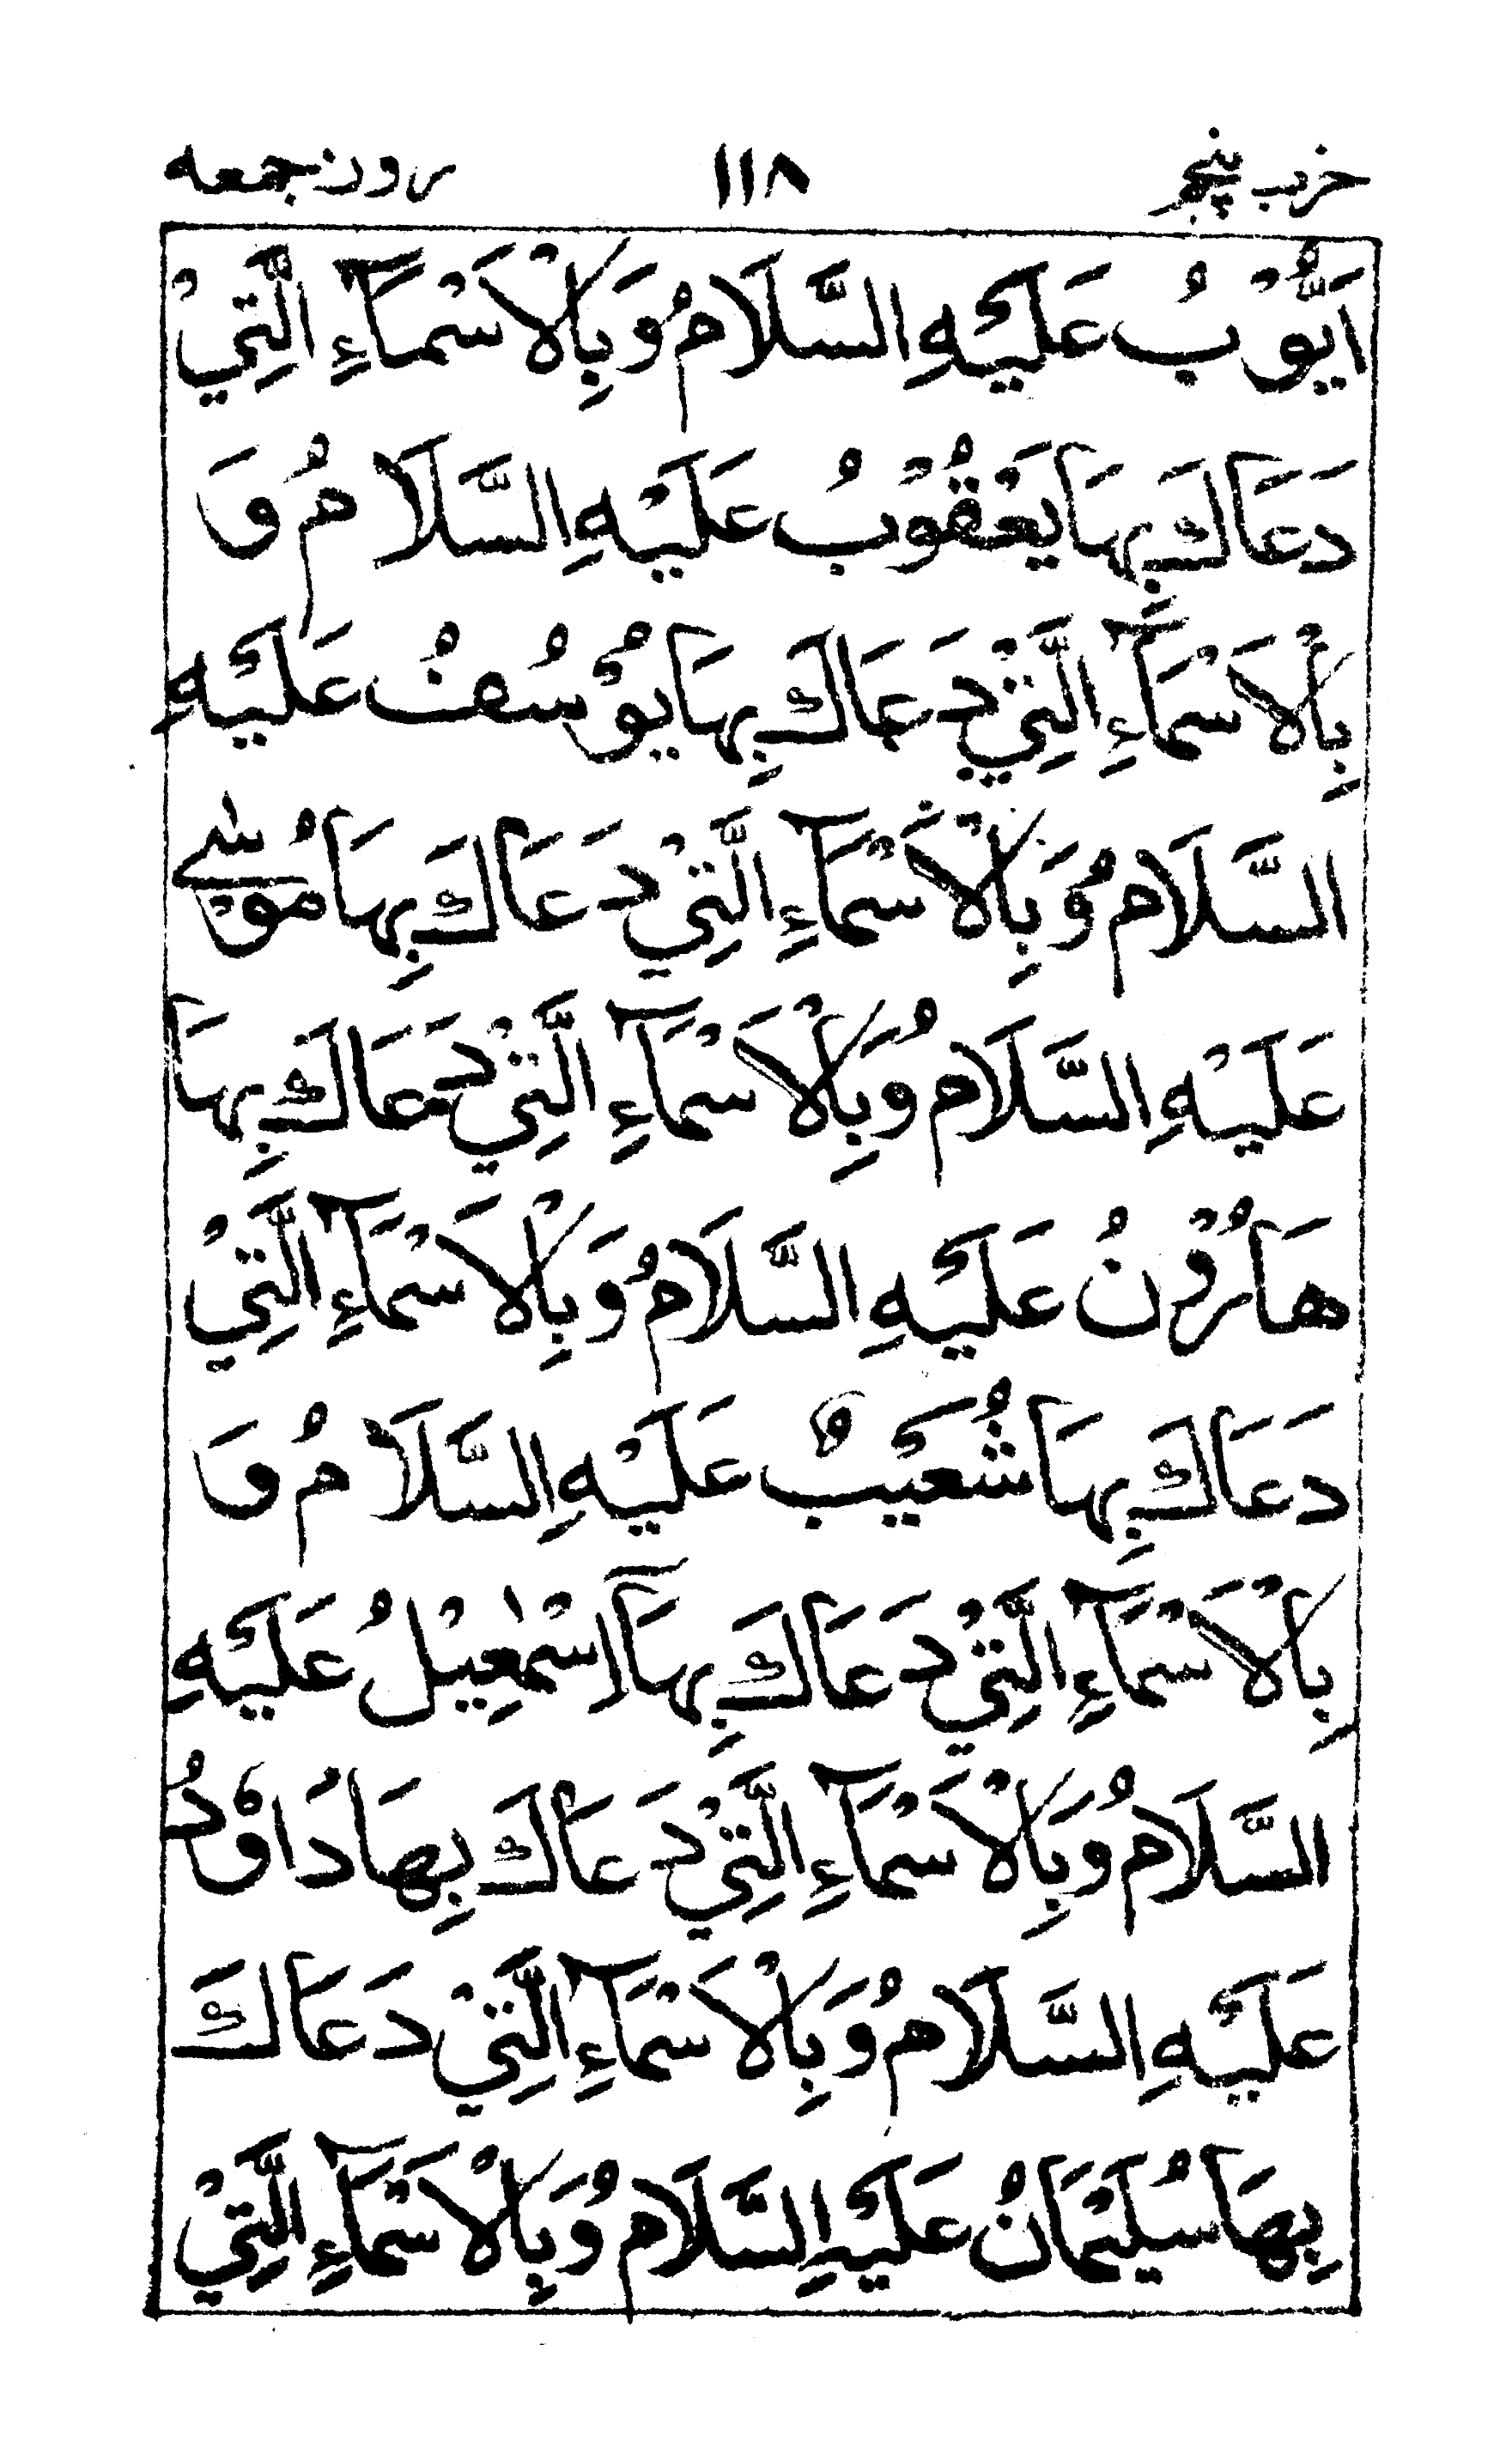 حزب پنجم ١١٨ روز جمعه
اَيُّوْبُ عَلَيْهِ السَّلَامُ وَبِالْاَسْمَآءِ الَّتِيْ
دَعَاكَ بِهَا يَعْقُوْبُ عَلَيْهِ السَّلَامُ وَ
بِالْاَسْمَآءِ الَّتِيْ دَعَاكَ بِهَا يُوْسُفُ عَلَيْهِ
السَّلَامُ وَبِالْاَسْمَآءِ الَّتِيْ دَعَاكَ بِهَا مُوْسٰے
عَلَيْهِ السَّلَامُ وَبِالْاَسْمَآءِ الَّتِيْ دَعَاكَ بِهَا
هَارُوْنُ عَلَيْهِ السَّلَامُ وَبِالْاَسْمَآءِ الَّتِيْ
دَعَاكَ بِهَا شُعَيْبٌ عَلَيْهِ السَّلَامُ وَ
بِالْاَسْمَآءِ الَّتِيْ دَعَاكَ بِهَآ اِسْمٰعِيْلُ عَلَيْهِ
السَّلَامُ وَبِالْاَسْمَآءِ الَّتِيْ دَعَاكَ بِهَا دَاوٗدُ
عَلَيْهِ السَّلَامُ وَبِالْاَسْمَآءِ الَّتِيْ دَعَاكَ
بِهَا سُلَيْمَانُ عَلَيْهِ السَّلَامُ وَبِالْاَسْمَآءِ الَّتِيْ